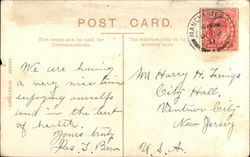 POST CARD.
This space may be used for
Correspondence.
The Address only to be
written here.
MANCHESTER
We are having
a very nice time
enjoying ourselves
and in the best
of health.
Yours truly
Mr Harry H.
City Hall,
Ventnor City
New Jersey
U.S.A.